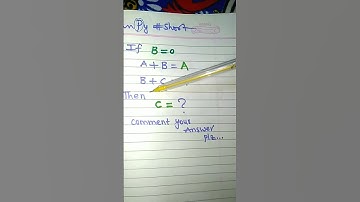 Py #Short
If B=0
A+B=A
B+C
Then
C=?
Comment your
Answer
plz...